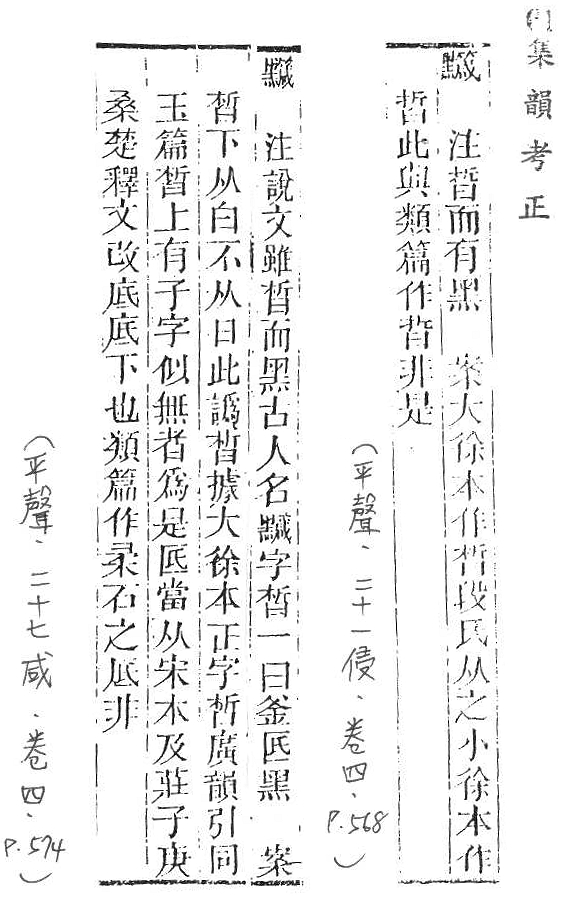 集韻考正
䵴 注晳而有黑 案大徐本作皙段氏从之小徐本作
晳此與類篇作晳非是
(平聲、二十一侵、卷四、P.568)
䵴 注說文雖晳而黑古人名䵴字晳一曰釜㡳黑 案
晳下从白不从日此譌晳據大徐本正字皙廣韻引同
玉篇晳上有子字似無者爲是㡳當从宋本及莊子庚
桑楚釋文改底底下也類篇作柔石之厎非
(平聲、二十七咸、卷四、P.574)